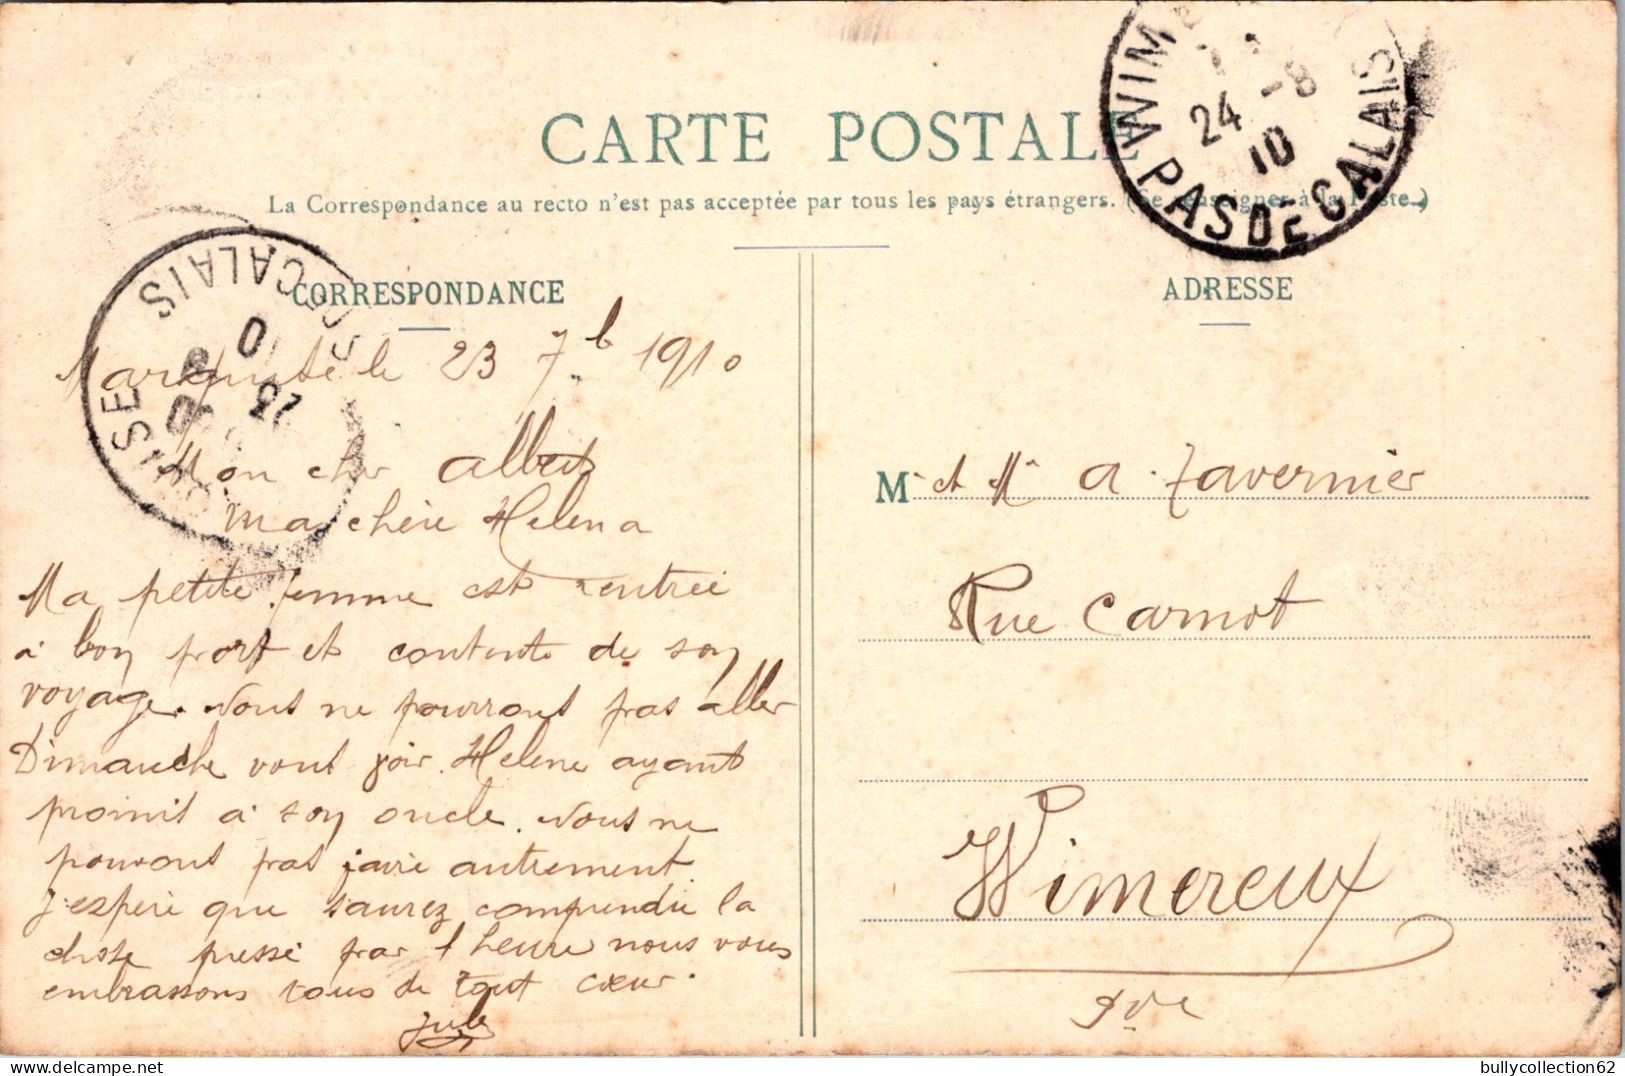 CARTE POSTALE
La Correspondance au recto n'est pas acceptée par tous les pays étrangers. (Se renseigner à la Poste.)
WIM
24 -8
10
PAS DE CALAIS
CORRESPONDANCE
CALAIS
Marquise le 23 7b 1910
Mon cher Albert
Ma chère Helena
Ma petite femme est rentrée
à bon port et contente de son
voyage. Nous ne pourrons pas aller
Dimanche vous voir. Helene ayant
promis à son oncle. Nous ne
pouvons pas faire autrement.
J'espère que saurez comprendre la
chose pressé par l heure nous vous
embrassons tous de tout cœur.
Jules
ADRESSE
Mr et Me A. Tavernier
Rue Carnot
Wimereux
bullycollection62